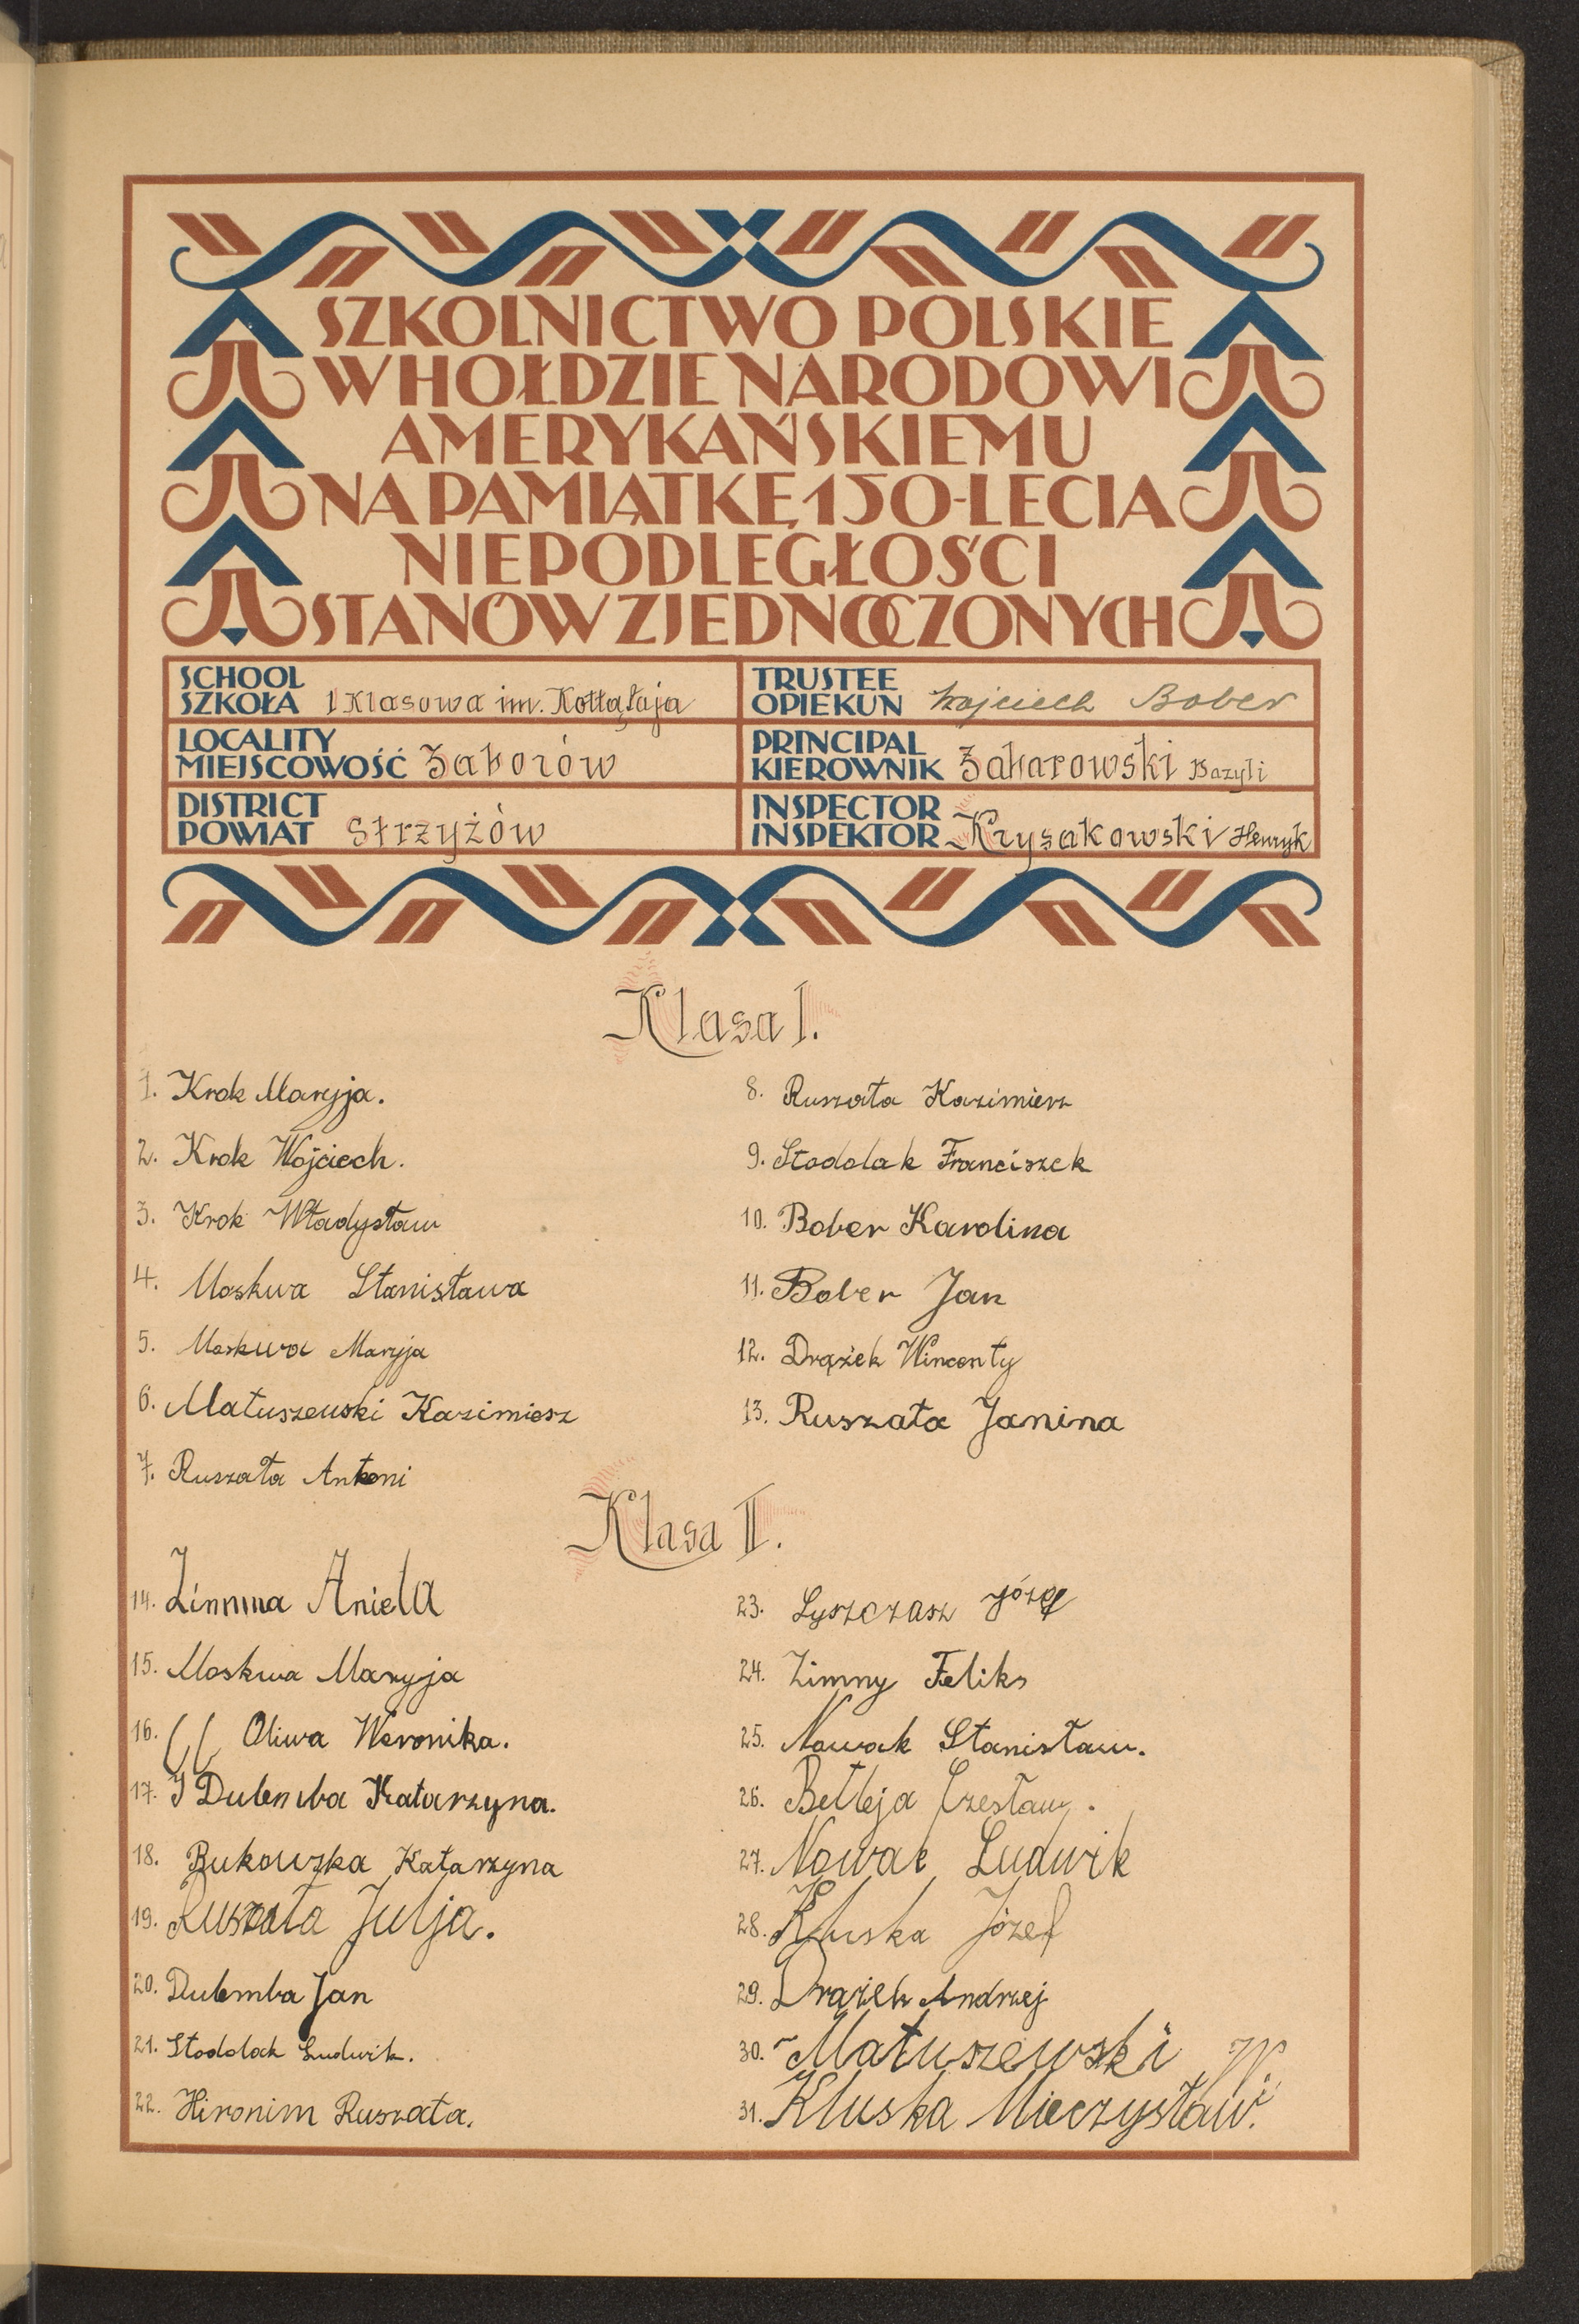 SZKOLNICTWO POLSKIE
W HOŁDZIE NARODOWI
AMERYKAŃSKIEMU
NA PAMIĄTKĘ 150-LECIA
NIEPODLEGŁOŚCI
STANÓW ZJEDNOCZONYCH
SCHOOL
SZKOŁA 1 Klasowa im. Kołłątaja
TRUSTEE
OPIEKUN Wojciech Bober
LOCALITY
MIEJSCOWOŚĆ Zaborów
PRINCIPAL
KIEROWNIK Zaharowski Bazyli
DISTRICT
POWIAT Strzyżów
INSPECTOR
INSPEKTOR Krysakowski Henryk
Klasa I.
1. Krok Maryja.
2. Krok Wojciech.
3. Krok Władysław
4. Moskwa Stanisława
5. Moskwa Maryja
6. Matuszewski Kazimiesz
7. Ruszała Antoni
8. Ruszała Kazimierz
9. Stodolak Franciszek
10. Bober Karolina
11. Bober Jan
12. Drążek Wincenty
13. Ruszała Janina
Klasa II.
14. Zimmna Aniela
15. Moskwa Maryja
16. Oliwa Weronika.
17. Dulemba Katarzyna.
18. Bukowska Katarzyna
19. Ruszała Julja.
20. Dulemba Jan
21. Stodolak Ludwik.
22. Hironim Ruszała.
23. Lyszczasz Józef
24. Zimny Feliks
25. Nowak Stanisław.
26. Betleja Czesław.
27. Nowak Ludwik
28. Kluska Józef
29. Drążek Andrzej
30. Matuszewski W.
31. Kluska Mieczysław.